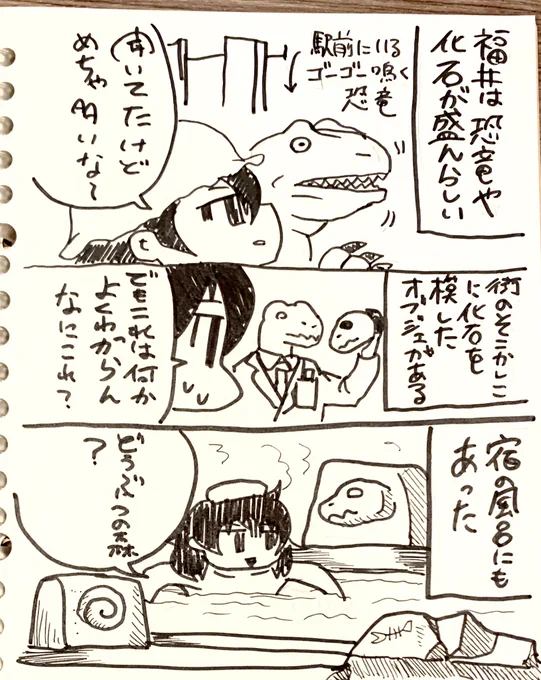 福井は恐竜や
化石が盛んらしい
駅前にいる
ゴーゴー鳴く
恐竜
聞いてたけど
めちゃ多いな〜
街のそこかしこ
に化石を
模した
オブジェがある
でもこれは何か
よくわっからん
なにこれ?
宿の風呂にも
あった
どうぶつの森
?